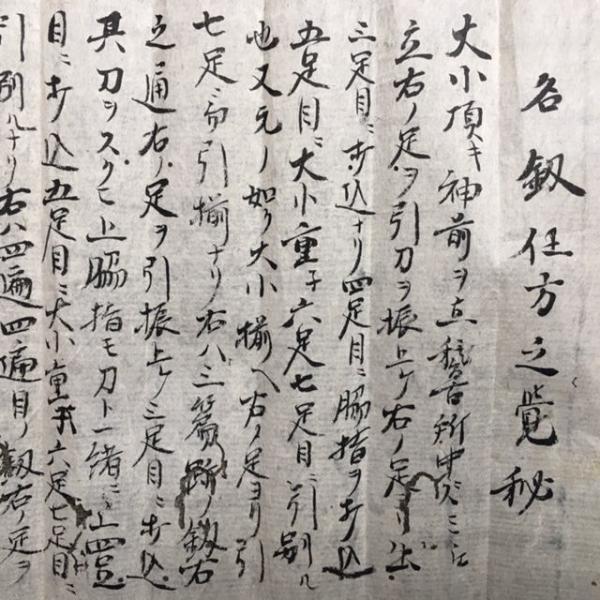 名釼仕方之覚秘
大小頂キ神前ヲ立稽古所中ニ
立右ノ足ヲ引刀ヲ振上ケ右ノ足ヨリ出
三足目ニ歩込ナリ四足目ニ脇指ヲ歩込
五足目ニ大小重子六足七足目ニ引別ル
也又元ノ如ク大小揃ヘ右ノ足ヨリ引
七足ニ而引揃ナリ右ハ三篇跡ノ釼右
之通右ノ足ヲ引振上ケ三足目ニ歩込
其刀ヲスクヒ上脇指モ刀ト一緒ニ上四足
目ニ歩込五足目ニ大小重子六足七足目ニ
引別ルナリ右ハ四遍四遍目ノ釼右ノ足ヲ